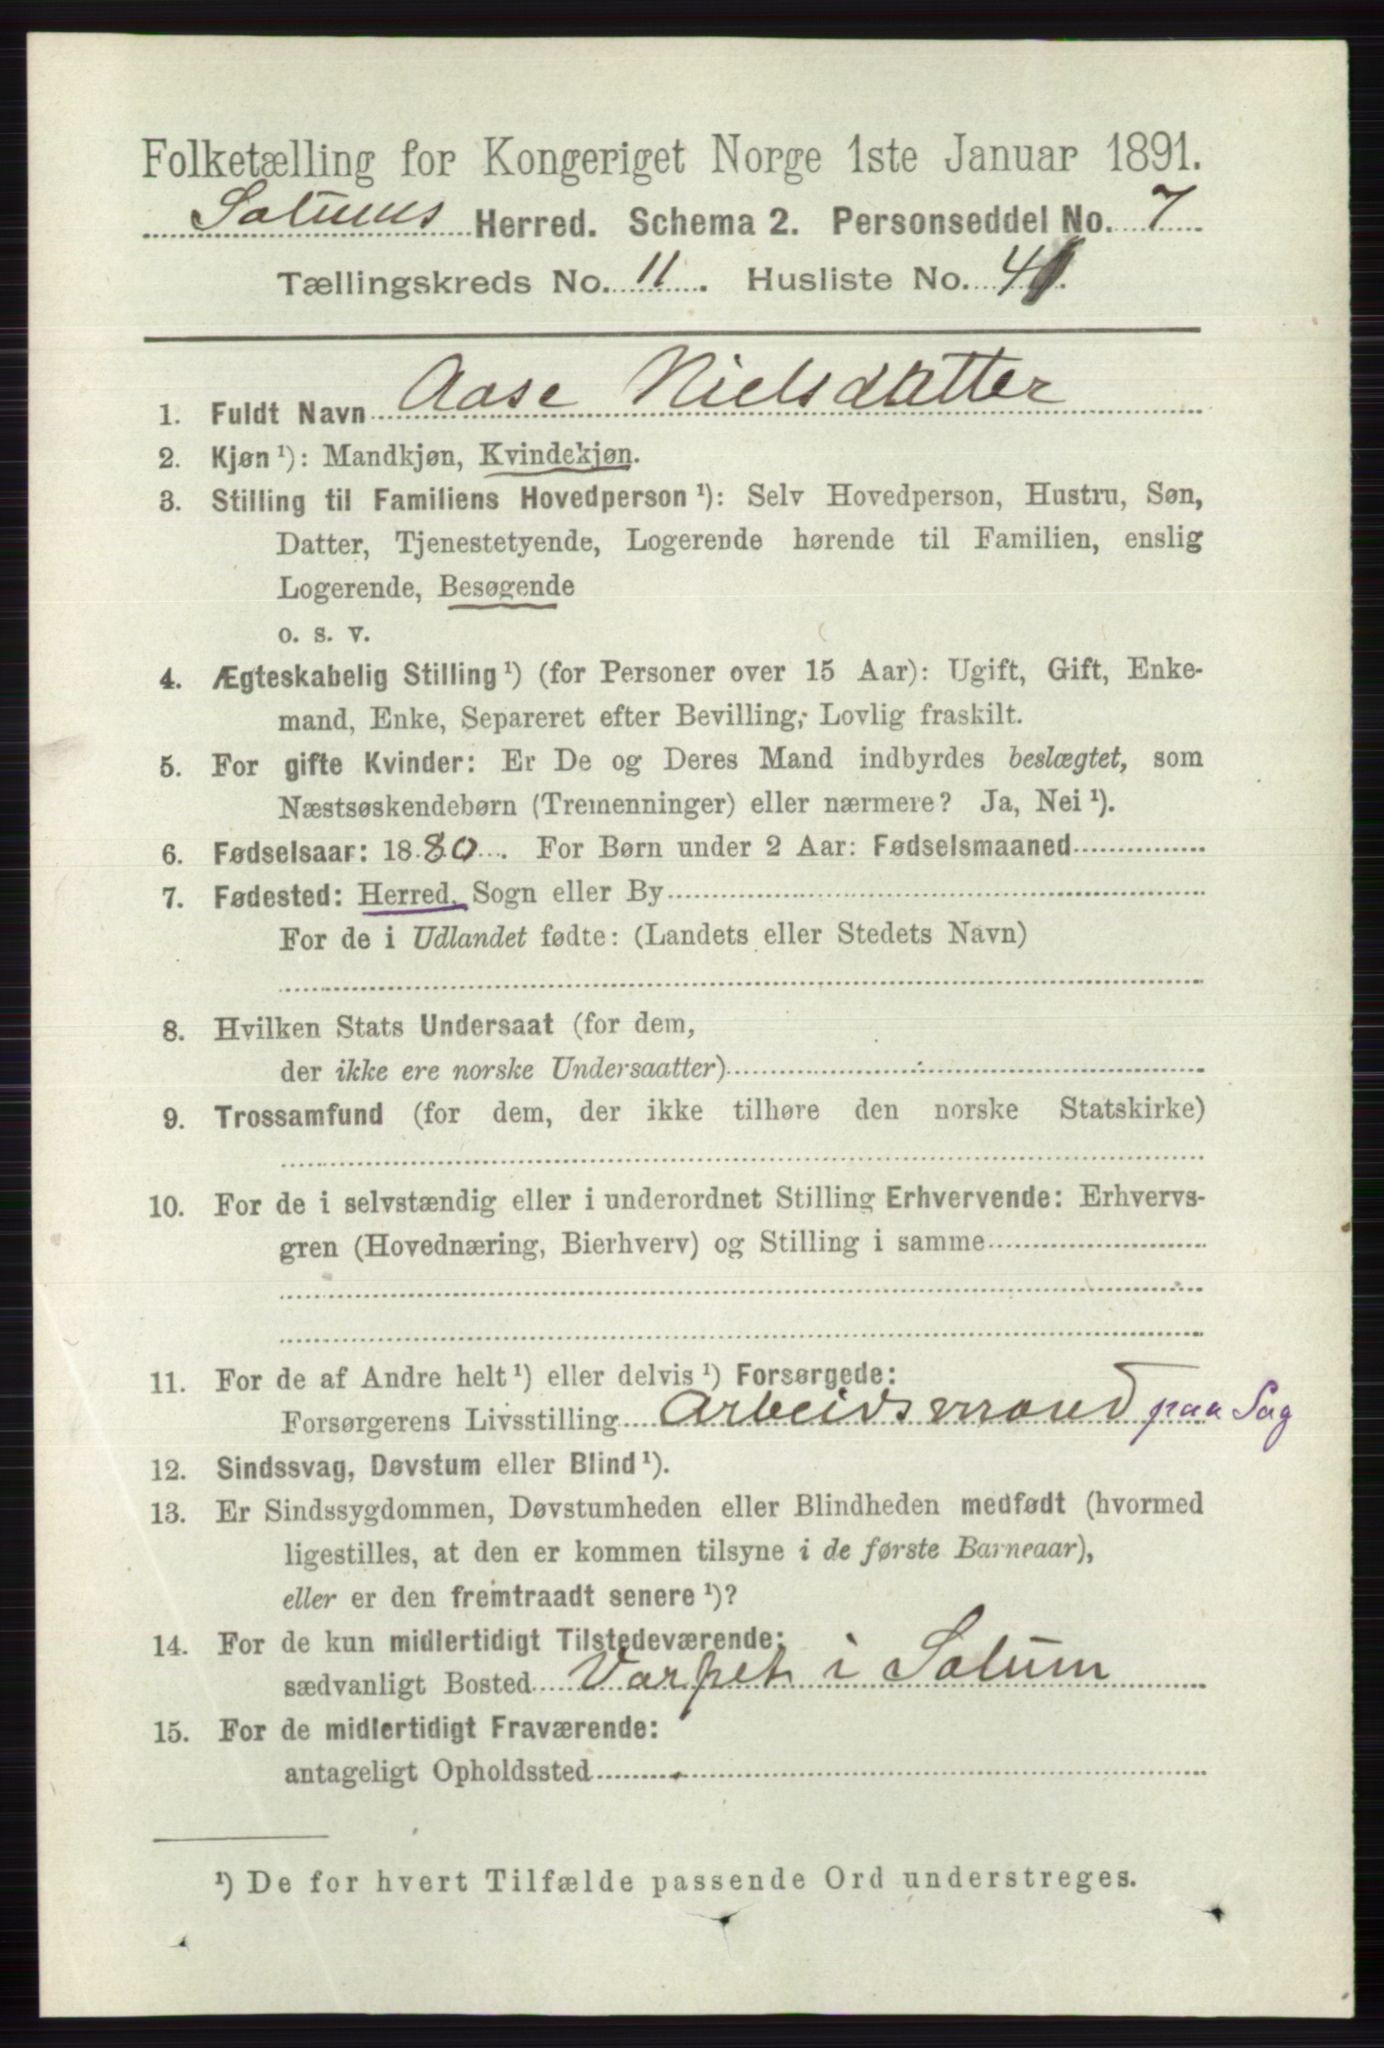 Folketælling for Kongeriget Norge 1ste Januar 1891.
Solums Herred. Schema 2. Personseddel No. 7
Tællingskreds No. 11. Husliste No. 4
1. Fuldt Navn Aase Nielsdatter
2. Kjøn ¹): Mandkjøn, Kvindekjøn.
3. Stilling til Familiens Hovedperson ¹): Selv Hovedperson, Hustru, Søn,
Datter, Tjenestetyende, Logerende hørende til Familien, enslig
Logerende, Besøgende
o. s. v.
4. Ægteskabelig Stilling ¹) (for Personer over 15 Aar): Ugift, Gift, Enke-
mand, Enke, Separeret efter Bevilling, Lovlig fraskilt.
5. For gifte Kvinder: Er De og Deres Mand indbyrdes beslægtet, som
Næstsøskendebørn (Tremenninger) eller nærmere? Ja, Nei ¹).
6. Fødselsaar: 1880. For Børn under 2 Aar: Fødselsmaaned
7. Fødested: Herred, Sogn eller By
For de i Udlandet fødte: (Landets eller Stedets Navn)
8. Hvilken Stats Undersaat (for dem,
der ikke ere norske Undersaatter)
9. Trossamfund (for dem, der ikke tilhøre den norske Statskirke)
10. For de i selvstændig eller i underordnet Stilling Erhvervende: Erhvervs-
gren (Hovednæring, Bierhverv) og Stilling i samme
11. For de af Andre helt ¹) eller delvis ¹) Forsørgede:
Forsørgerens Livsstilling Arbeidsmand paa Sag
12. Sindssvag, Døvstum eller Blind ¹).
13. Er Sindssygdommen, Døvstumheden eller Blindheden medfødt (hvormed
ligestilles, at den er kommen tilsyne i de første Barneaar),
eller er den fremtraadt senere ¹)?
14. For de kun midlertidigt Tilstedeværende:
sædvanligt Bosted Varpet i Solum
15. For de midlertidigt Fraværende:
antageligt Opholdssted
¹) De for hvert Tilfælde passende Ord understreges.